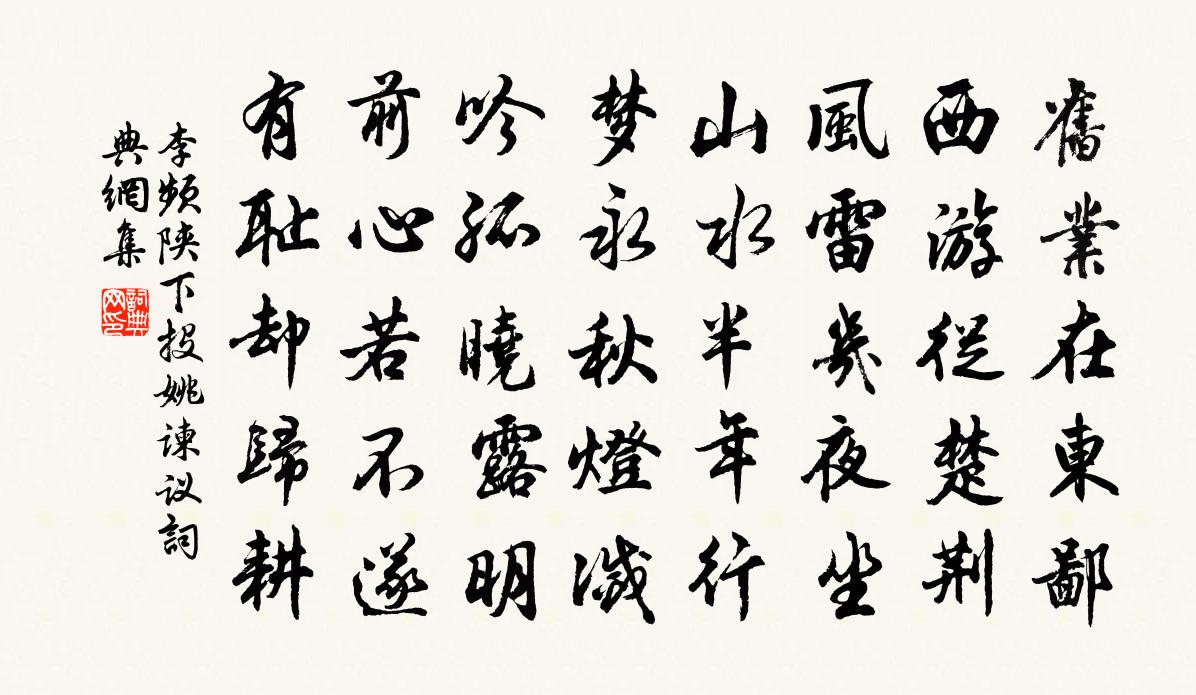 舊業在東鄙
西游從楚荆
風雷幾夜坐
山水半年行
梦永秋燈滅
吟孤曉露明
前心若不遂
有耻却歸耕
李頻陝下投姚諫议詞
典網集
詞典網印